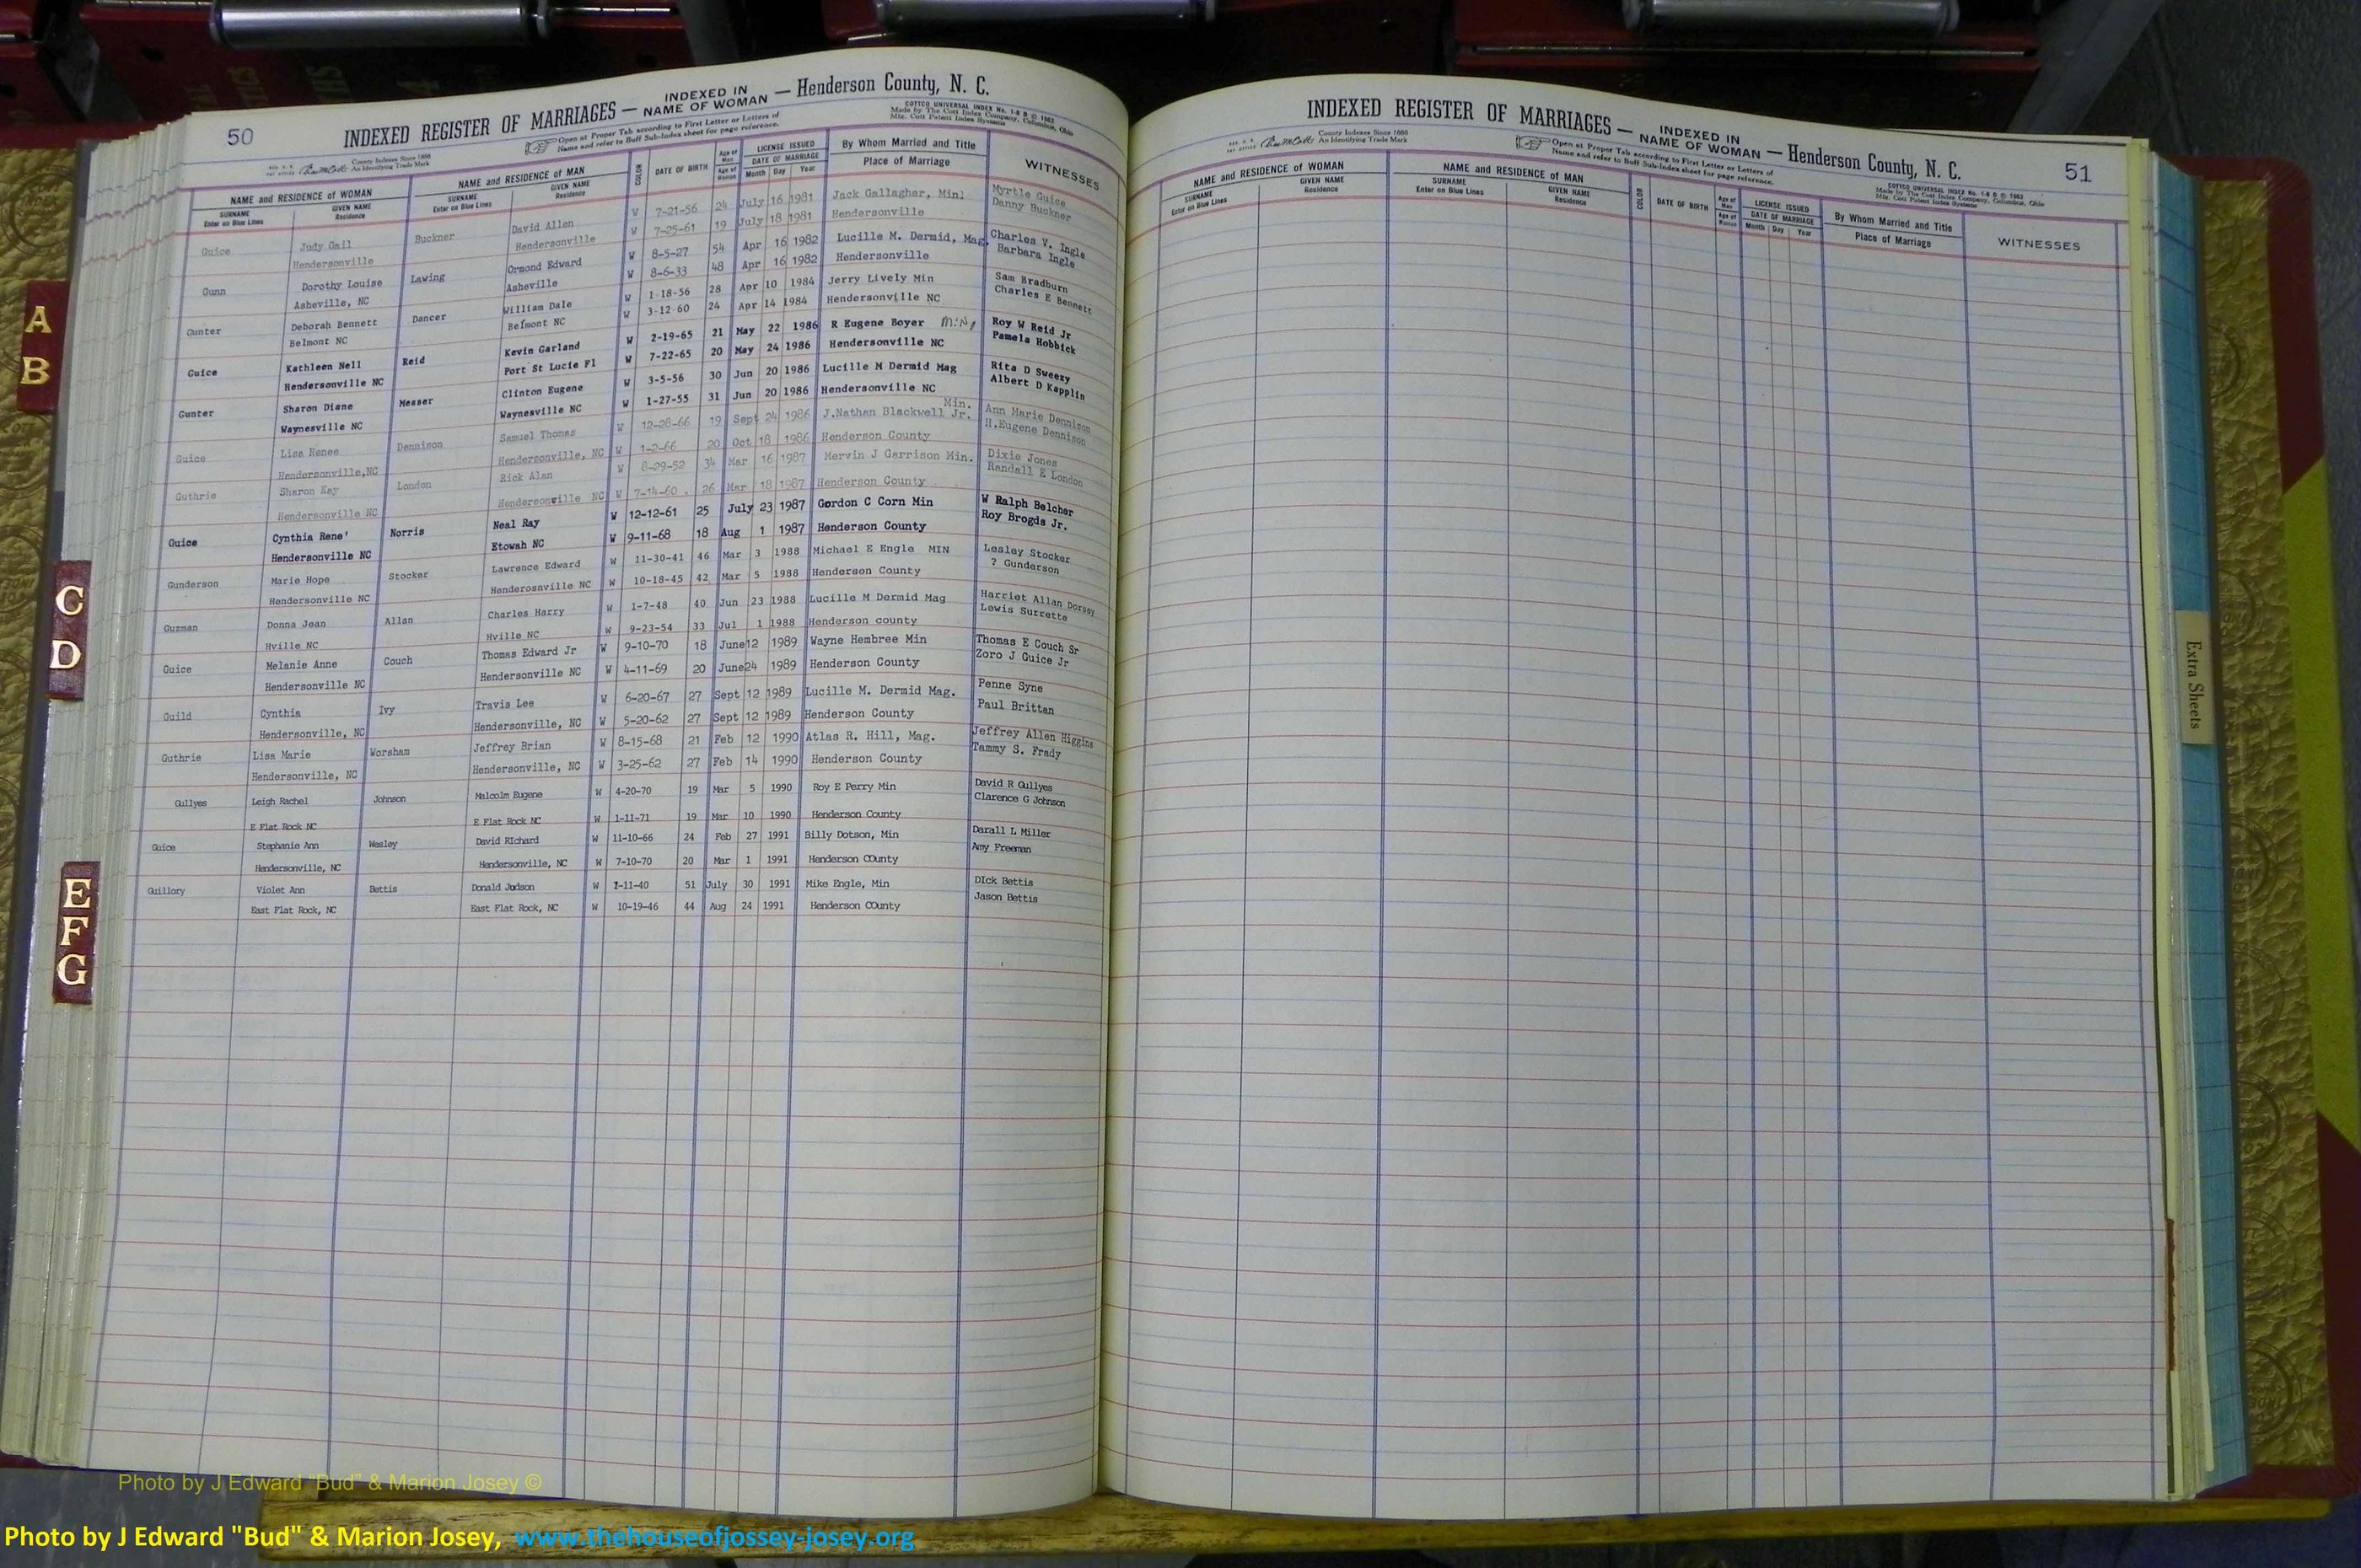 50
INDEXED REGISTER OF MARRIAGES — INDEXED IN NAME OF WOMAN — Henderson County, N. C.
County Indexes Since 1888
An Identifying Trade Mark
Open at Proper Tab according to First Letter or Letters of
Name and refer to Buff Sub-Index sheet for page reference.
COTTCO UNIVERSAL INDEX No. 1-8 B © 1962
Made by The Cott Index Company, Columbus, Ohio
Mfr. Cott Patent Index Systems
NAME and RESIDENCE of WOMAN NAME and RESIDENCE OF MAN COLOR DATE OF BIRTH Age of Man LICENSE ISSUED By Whom Married and Title WITNESSES
SURNAME GIVEN NAME SURNAME GIVEN NAME Age of Woman DATE OF MARRIAGE Place of Marriage
Enter on Blue Lines Residence Enter on Blue Lines Residence Month Day Year
Guice Judy Gail Buckner David Allen W 7-21-56 24 July 16 1981 Jack Gallagher, Minl Myrtle Guice
Hendersonville Hendersonville W 7-25-61 19 July 18 1981 Hendersonville Danny Buckner
Gunn Dorothy Louise Lawing Ormond Edward W 8-5-27 54 Apr 16 1982 Lucille M. Dermid, Mag. Charles V. Ingle
Asheville, NC Asheville W 8-6-33 48 Apr 16 1982 Hendersonville Barbara Ingle
Gunter Deborah Bennett Dancer William Dale W 1-18-56 28 Apr 10 1984 Jerry Lively Min Sam Bradburn
Belmont NC Belmont NC W 3-12-60 24 Apr 14 1984 Hendersonville NC Charles E Bennett
Guice Kathleen Nell Reid Kevin Garland W 2-19-65 21 May 22 1986 R Eugene Boyer Min Roy W Reid Jr
Hendersonville NC Port St Lucie Fl W 7-22-65 20 May 24 1986 Hendersonville NC Pamela Hobbick
Gunter Sharon Diane Messer Clinton Eugene W 3-5-56 30 Jun 20 1986 Lucille M Dermid Mag Rita D Sweezy
Waynesville NC Waynesville NC W 1-27-55 31 Jun 20 1986 Hendersonville NC Albert D Kapplin
Guice Lisa Renee Dennison Samuel Thomas W 12-28-66 19 Sept 24 1986 J.Nathan Blackwell Jr. Min. Ann Marie Dennison
Hendersonville,NC Hendersonville, NC W 1-2-66 20 Oct 18 1986 Henderson County H.Eugene Dennison
Guthrie Sharon Kay London Rick Alan W 8-29-52 34 Mar 16 1987 Mervin J Garrison Min. Dixie Jones
Hendersonville NC Hendersonville NC W 7-14-60 26 Mar 18 1987 Henderson County Randall E London
Guice Cynthia Rene' Norris Neal Ray W 12-12-61 25 July 23 1987 Gordon C Corn Min W Ralph Belcher
Hendersonville NC Etowah NC W 9-11-68 18 Aug 1 1987 Henderson County Roy Brogds Jr.
Gunderson Marie Hope Stocker Lawrence Edward W 11-30-41 46 Mar 3 1988 Michael E Engle MIN Lesley Stocker
Hendersonville NC Henderosnville NC W 10-18-45 42 Mar 5 1988 Henderson County ? Gunderson
Guzman Donna Jean Allan Charles Harry W 1-7-48 40 Jun 23 1988 Lucille M Dermid Mag Harriet Allan Dorsey
Hville NC Hville NC W 9-23-54 33 Jul 1 1988 Henderson county Lewis Surrette
Guice Melanie Anne Couch Thomas Edward Jr W 9-10-70 18 June 12 1989 Wayne Hembree Min Thomas E Couch Sr
Hendersonville NC Hendersonville NC W 4-11-69 20 June 24 1989 Henderson County Zoro J Guice Jr
Guild Cynthia Ivy Travis Lee W 6-20-67 27 Sept 12 1989 Lucille M. Dermid Mag. Penne Syne
Hendersonville, NC Hendersonville, NC W 5-20-62 27 Sept 12 1989 Henderson County Paul Brittan
Guthrie Lisa Marie Worsham Jeffrey Brian W 8-15-68 21 Feb 12 1990 Atlas R. Hill, Mag. Jeffrey Allen Higgins
Hendersonville, NC Hendersonville, NC W 3-25-62 27 Feb 14 1990 Henderson County Tammy S. Frady
Gullyes Leigh Rachel Johnson Malcolm Eugene W 4-20-70 19 Mar 5 1990 Roy E Perry Min David R Gullyes
E Flat Rock NC E Flat Rock NC W 1-11-71 19 Mar 10 1990 Henderson County Clarence G Johnson
Guice Stephanie Ann Wesley David RIchard W 11-10-66 24 Feb 27 1991 Billy Dotson, Min Darall L Miller
Hendersonville, NC Hendersonville, NC W 7-10-70 20 Mar 1 1991 Henderson COunty Amy Freeman
Guillory Violet Ann Bettis Donald Judson W 7-11-40 51 July 30 1991 Mike Engle, Min DIck Bettis
East Flat Rock, NC East Flat Rock, NC W 10-19-46 44 Aug 24 1991 Henderson COunty Jason Bettis
INDEXED REGISTER OF MARRIAGES — INDEXED IN NAME OF WOMAN — Henderson County, N. C.
51
County Indexes Since 1888
An Identifying Trade Mark
Open at Proper Tab according to First Letter or Letters of
Name and refer to Buff Sub-Index sheet for page reference.
COTTCO UNIVERSAL INDEX No. 1-8 B © 1962
Made by The Cott Index Company, Columbus, Ohio
Mfr. Cott Patent Index Systems
NAME and RESIDENCE of WOMAN NAME and RESIDENCE OF MAN COLOR DATE OF BIRTH Age of Man LICENSE ISSUED By Whom Married and Title WITNESSES
SURNAME GIVEN NAME SURNAME GIVEN NAME Age of Woman DATE OF MARRIAGE Place of Marriage
Enter on Blue Lines Residence Enter on Blue Lines Residence Month Day Year
A
B
C
D
E
F
G
Extra Sheets
Photo by J Edward "Bud" & Marion Josey ©
Photo by J Edward "Bud" & Marion Josey, www.thehouseofjossey-josey.org